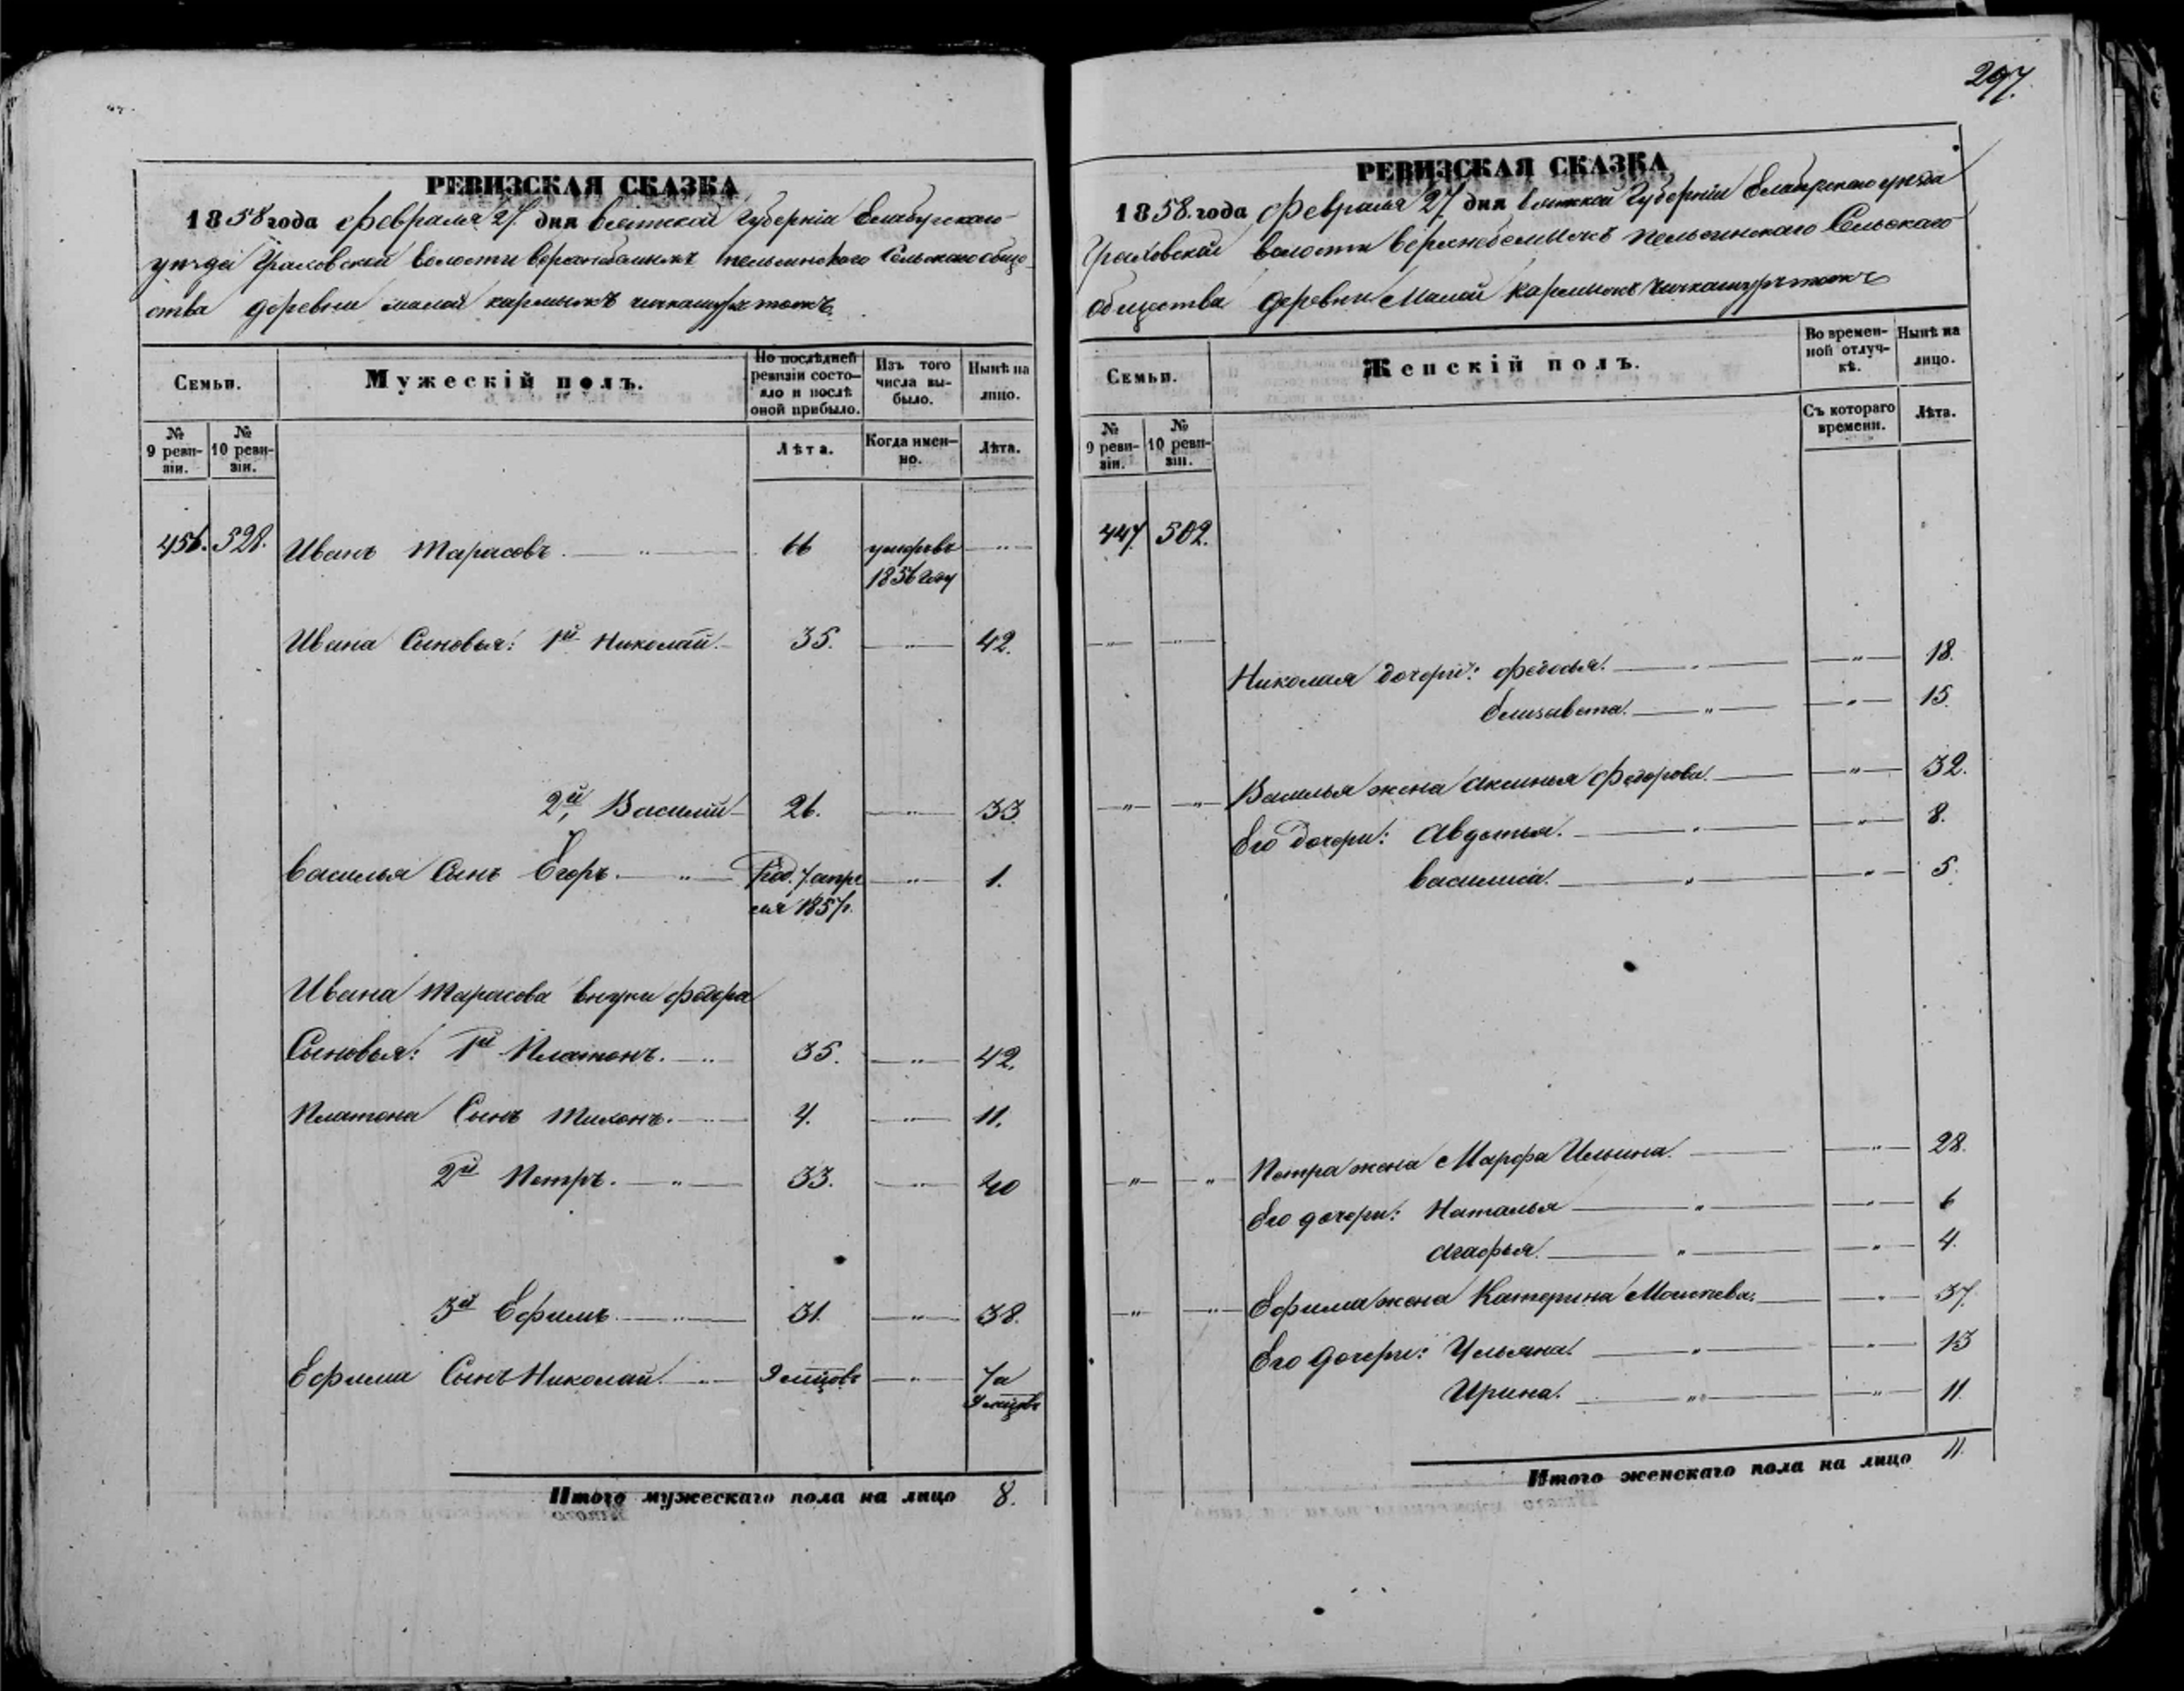 РЕВИЗСКАЯ СКАЗКА
1858 года февраля 27 дня Вятской губернiи Елабугскаго
уѣзда Граховской волости сельскаго обще-
ства деревни малой
Семьи.
Мужескій полъ.
По послѣдней ревизіи состояло и послѣ оной прибыло.
Изъ того числа выбыло.
Нынѣ на лицо.
№ 9 ревизіи.
№ 10 ревизіи.
Лѣта.
Когда именно.
Лѣта.
456. 528. Иванъ Тарасовъ. 66 умеръ въ 1856 году
Ивана Сыновья: 1й Николай. 35. 42.
2й, Василий 26. 33.
Василья Сынъ Егоръ. Род. 7 апреля 1857 г. 1.
Ивана Тарасова внуки Федора
Сыновья: 1й Платонъ. 35. 42.
Платона Сынъ Тихонъ. 4. 11.
2й Петръ. 33. 40
3й Ефимъ. 31. 38.
Ефима Сынъ Николай. 9 мцовъ 7 а 9 мцовъ
Итого мужескаго пола на лицо 8.
297.
РЕВИЗСКАЯ СКАЗКА
1858. года февраля 27 дня Вятской губернiи Елабугскаго уѣзда
Граховской волости Сельскаго
общества деревни Малой
Семьи.
Женскій полъ.
Во временной отлучкѣ.
Нынѣ на лицо.
№ 9 ревизіи.
№ 10 ревизіи.
Съ котораго времени.
Лѣта.
447. 502.
Николая дочери: Федосья. 18.
Елизавета. 15.
Василья жена Аксинья Федорова. 32.
Его дочери: Авдотья. 8.
Василиса. 5.
Петра жена Марфа Ильина. 28.
Его дочери: Наталья 6
Агафья. 4.
Ефима жена Катерина Моисеева. 37.
Его дочери: Ульяна. 13
Ирина. 11.
Итого женскаго пола на лицо 11.